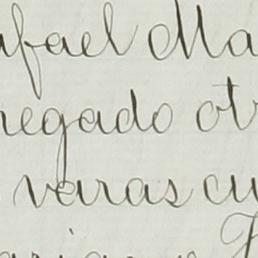 afael Ma
regado ot
varas cu